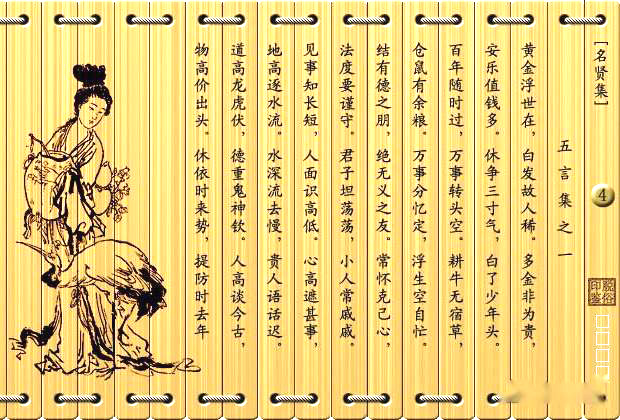 [名贤集]
4
脱俗印鉴
五言集之一
黄金浮世在，白发故人稀。多金非为贵，
安乐值钱多。休争三寸气，白了少年头。
百年随时过，万事转头空。耕牛无宿草，
仓鼠有余粮。万事分忆定，浮生空自忙。
结有德之朋，绝无义之友。常怀克己心，
法度要谨守。君子坦荡荡，小人常戚戚。
见事知长短，人面识高低。心高遮甚事，
地高逐水流。水深流去慢，贵人语话迟。
道高龙虎伏，德重鬼神钦。人高谈今古，
物高价出头。休依时来势，提防时去年